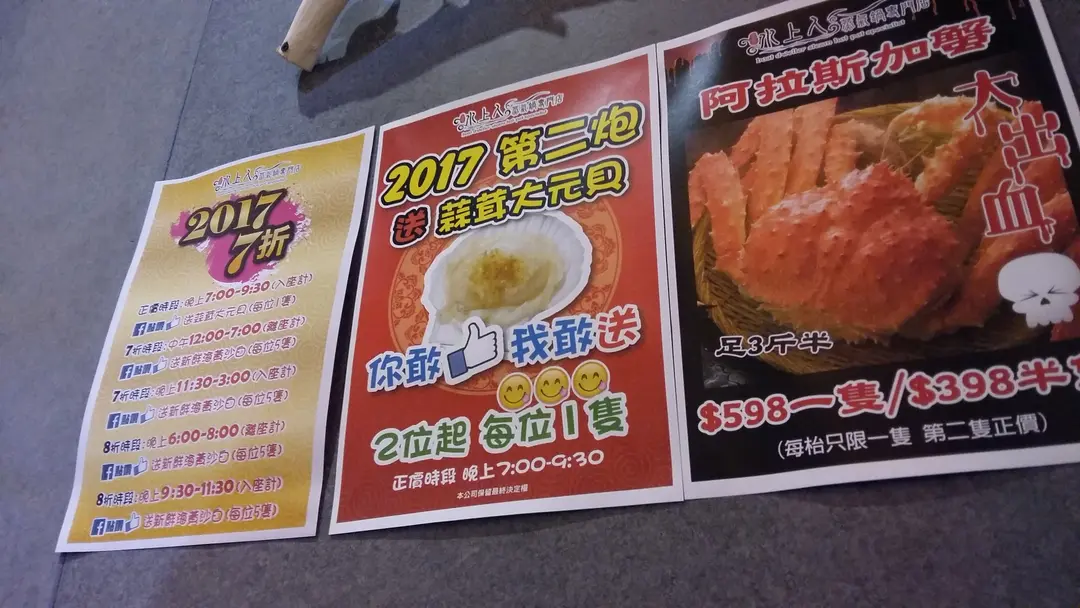 水上人蒸氣鍋專門店
2017
7折
正價時段:晚上7:00-9:30(入座計)
f點讚 送蒜茸大元貝(每位1隻)
7折時段:中午12:00-7:00(離座計)
f點讚 送新鮮海黃沙白(每位5隻)
7折時段:晚上11:30-3:00(入座計)
f點讚 送新鮮海黃沙白(每位5隻)
8折時段:晚上6:00-8:00(離座計)
f點讚 送新鮮海黃沙白(每位5隻)
8折時段:晚上9:30-11:30(入座計)
f點讚 送新鮮海黃沙白(每位5隻)
水上人蒸氣鍋專門店
2017 第二炮
送 蒜茸大元貝
你敢 我敢送
2位起 每位1隻
正價時段 晚上7:00-9:30
本公司保留最終決定權
水上人蒸氣鍋專門店
boat dweller steam hot pot specialist
阿拉斯加蟹
大出血
足3斤半
$598一隻/$398半
(每枱只限一隻 第二隻正價)